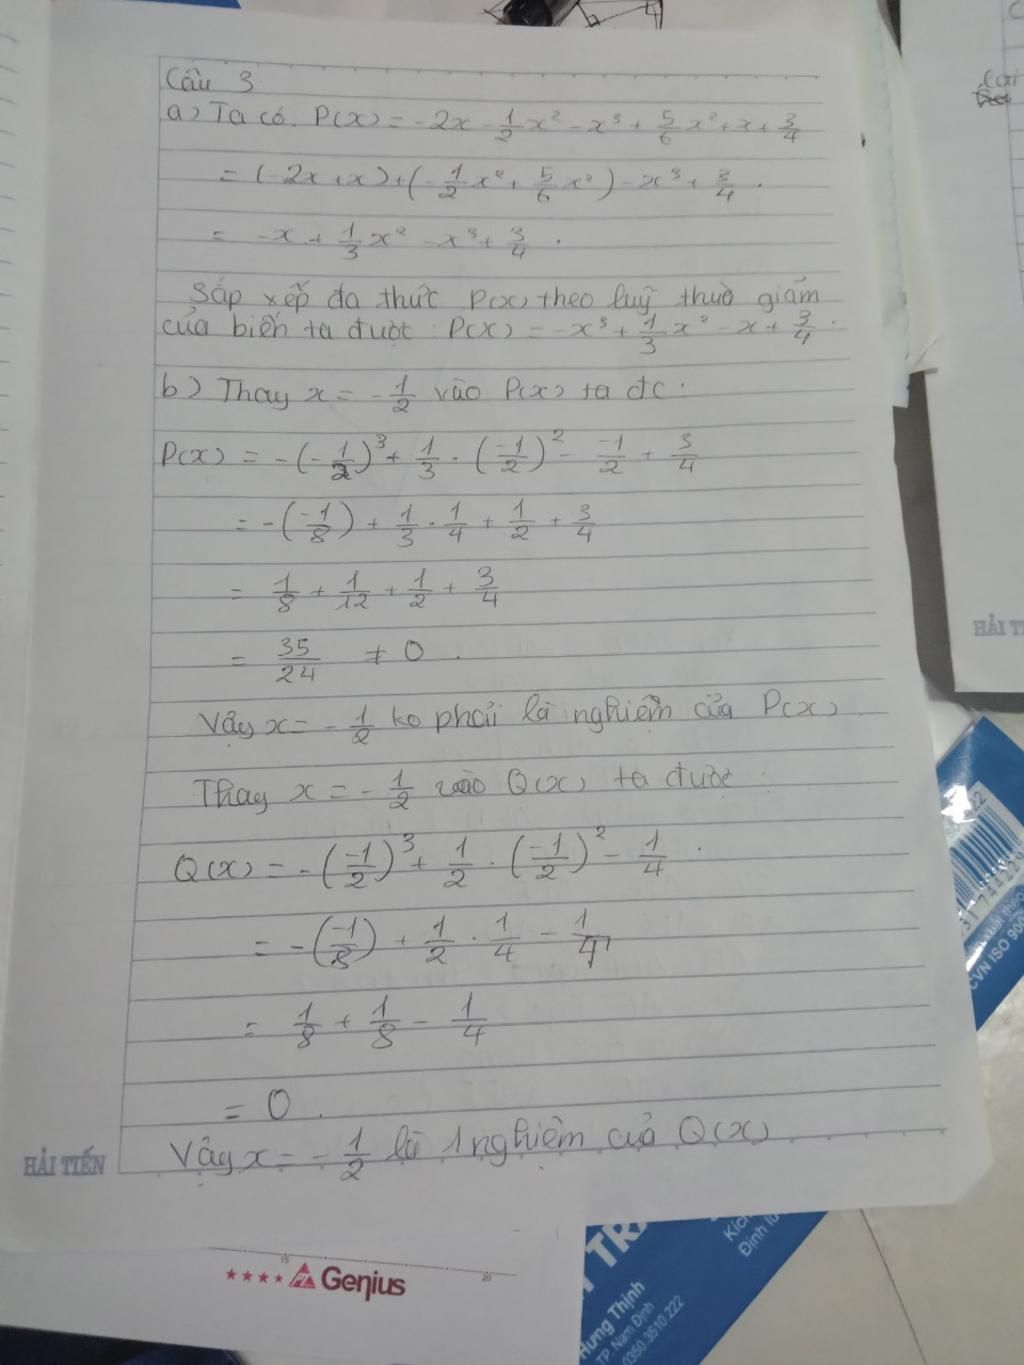 Câu 3
a) Ta có P(x) = -2x - 1/2 x² - x³ + 5/6 x² + x + 3/4
= (-2x+x) + (-1/2 x² + 5/6 x²) - x³ + 3/4.
= -x + 1/3 x² - x³ + 3/4.
Sắp xếp đa thức P(x) theo luỹ thừa giảm
của biến ta được: P(x) = -x³ + 1/3 x² - x + 3/4.
b) Thay x = -1/2 vào P(x) ta đc:
P(x) = -(-1/2)³ + 1/3 . (-1/2)² - -1/2 + 3/4
= -(-1/8) + 1/3 . 1/4 + 1/2 + 3/4
= 1/8 + 1/12 + 1/2 + 3/4
= 35/24 ≠ 0.
Vậy x = -1/2 ko phải là nghiệm của P(x)
Thay x = -1/2 vào Q(x) ta được:
Q(x) = -(-1/2)³ + 1/2 . (-1/2)² - 1/4.
= -(-1/8) + 1/2 . 1/4 - 1/4
= 1/8 + 1/8 - 1/4
= 0.
Vậy x = -1/2 là 1 nghiệm của Q(x)
HẢI TIẾN
Genius
HẢI TI
CVN ISO 900
Hưng Thịnh
TP. Nam Định
0350.3510.222